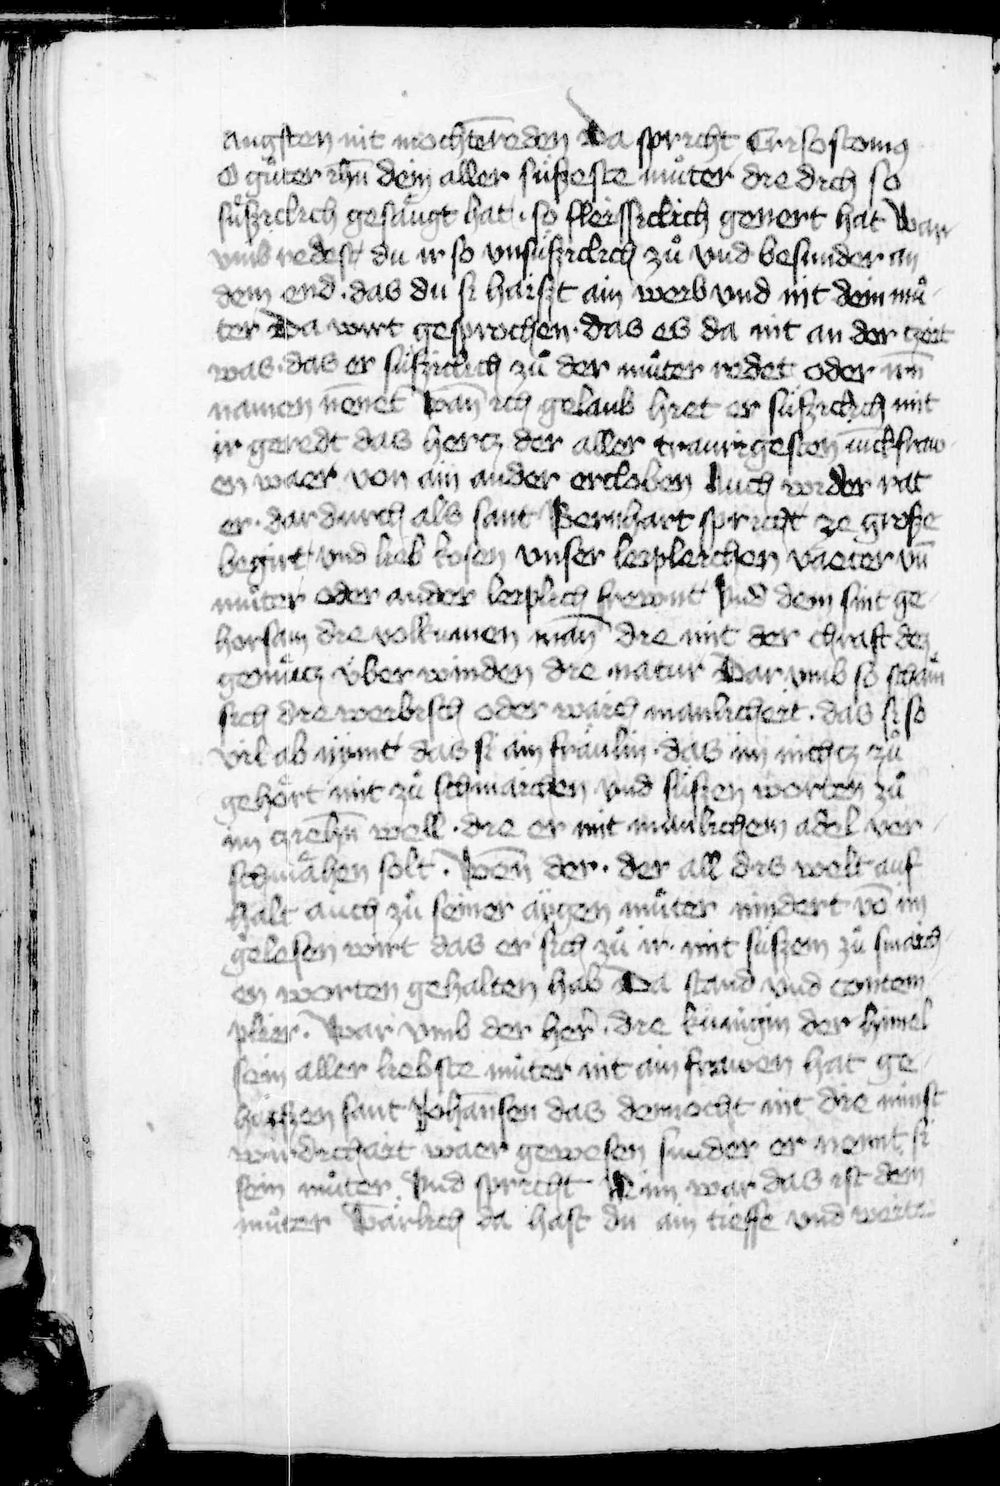 angsten nit mocht̄ reden Da spricht Crisostomꝯ
O gůter ih̄u dein aller süſzeste můter die dich so
süſziclich gesaugt hat · so fleissiclich genert hat War
vmb redest du ir so vnsüſziclich zů vnd besunder an
dem end · das du si haiſzt ain weib vnd nit dein mů
ter Da wirt gesprochen · das es da nit an der czeit
was · das er süſziclich zů der můter redet oder iñ
namen nēnet Wan̄ ich gelaub hiet er süſziclich mit
ir geredt das hertz der aller traurigesten iūckfraw
en waer von ain ander ercloben Auch wider rat
er · dardurch als sant Bernhart spricht ze groſze
begirt vnd lieb kosen vnser leiplichen vaeter vn̄
můter oder ander leiplich frewnt Vnd dem sint ge
horsam die volkumen man̄ die mit der chraft dez
gemůtz über winden die natur Dar vmb so schäm
sich die weibisch oder waich manlicheit · das si so
vil ab nimt das si ain fräulin · das im nichtz zů
gehört mit zů schmaichen vnd süſzen worten zů
im ziehn̄ well · die er mit manlichem adel ver
schmähen solt · Wen̄ der · der all dis welt auf
halt auch zů seiner aygen můter nindert vō im
gelesen wirt das er sich zů ir · mit süſzem zů smaich
en worten gehalten hab Da stand vnd contem
plier · War vmb der her̄ · die küngin der himel
sein aller liebste můter nit ain frawen hat ge
haiſzen sant Johānsen das dennocht nit die minst
wirdichait waer gewesen sunder er nennt si
sein můter Vnd spricht Nim war das ist dein
můter Warlich da hast du ain tieffe vnd weite